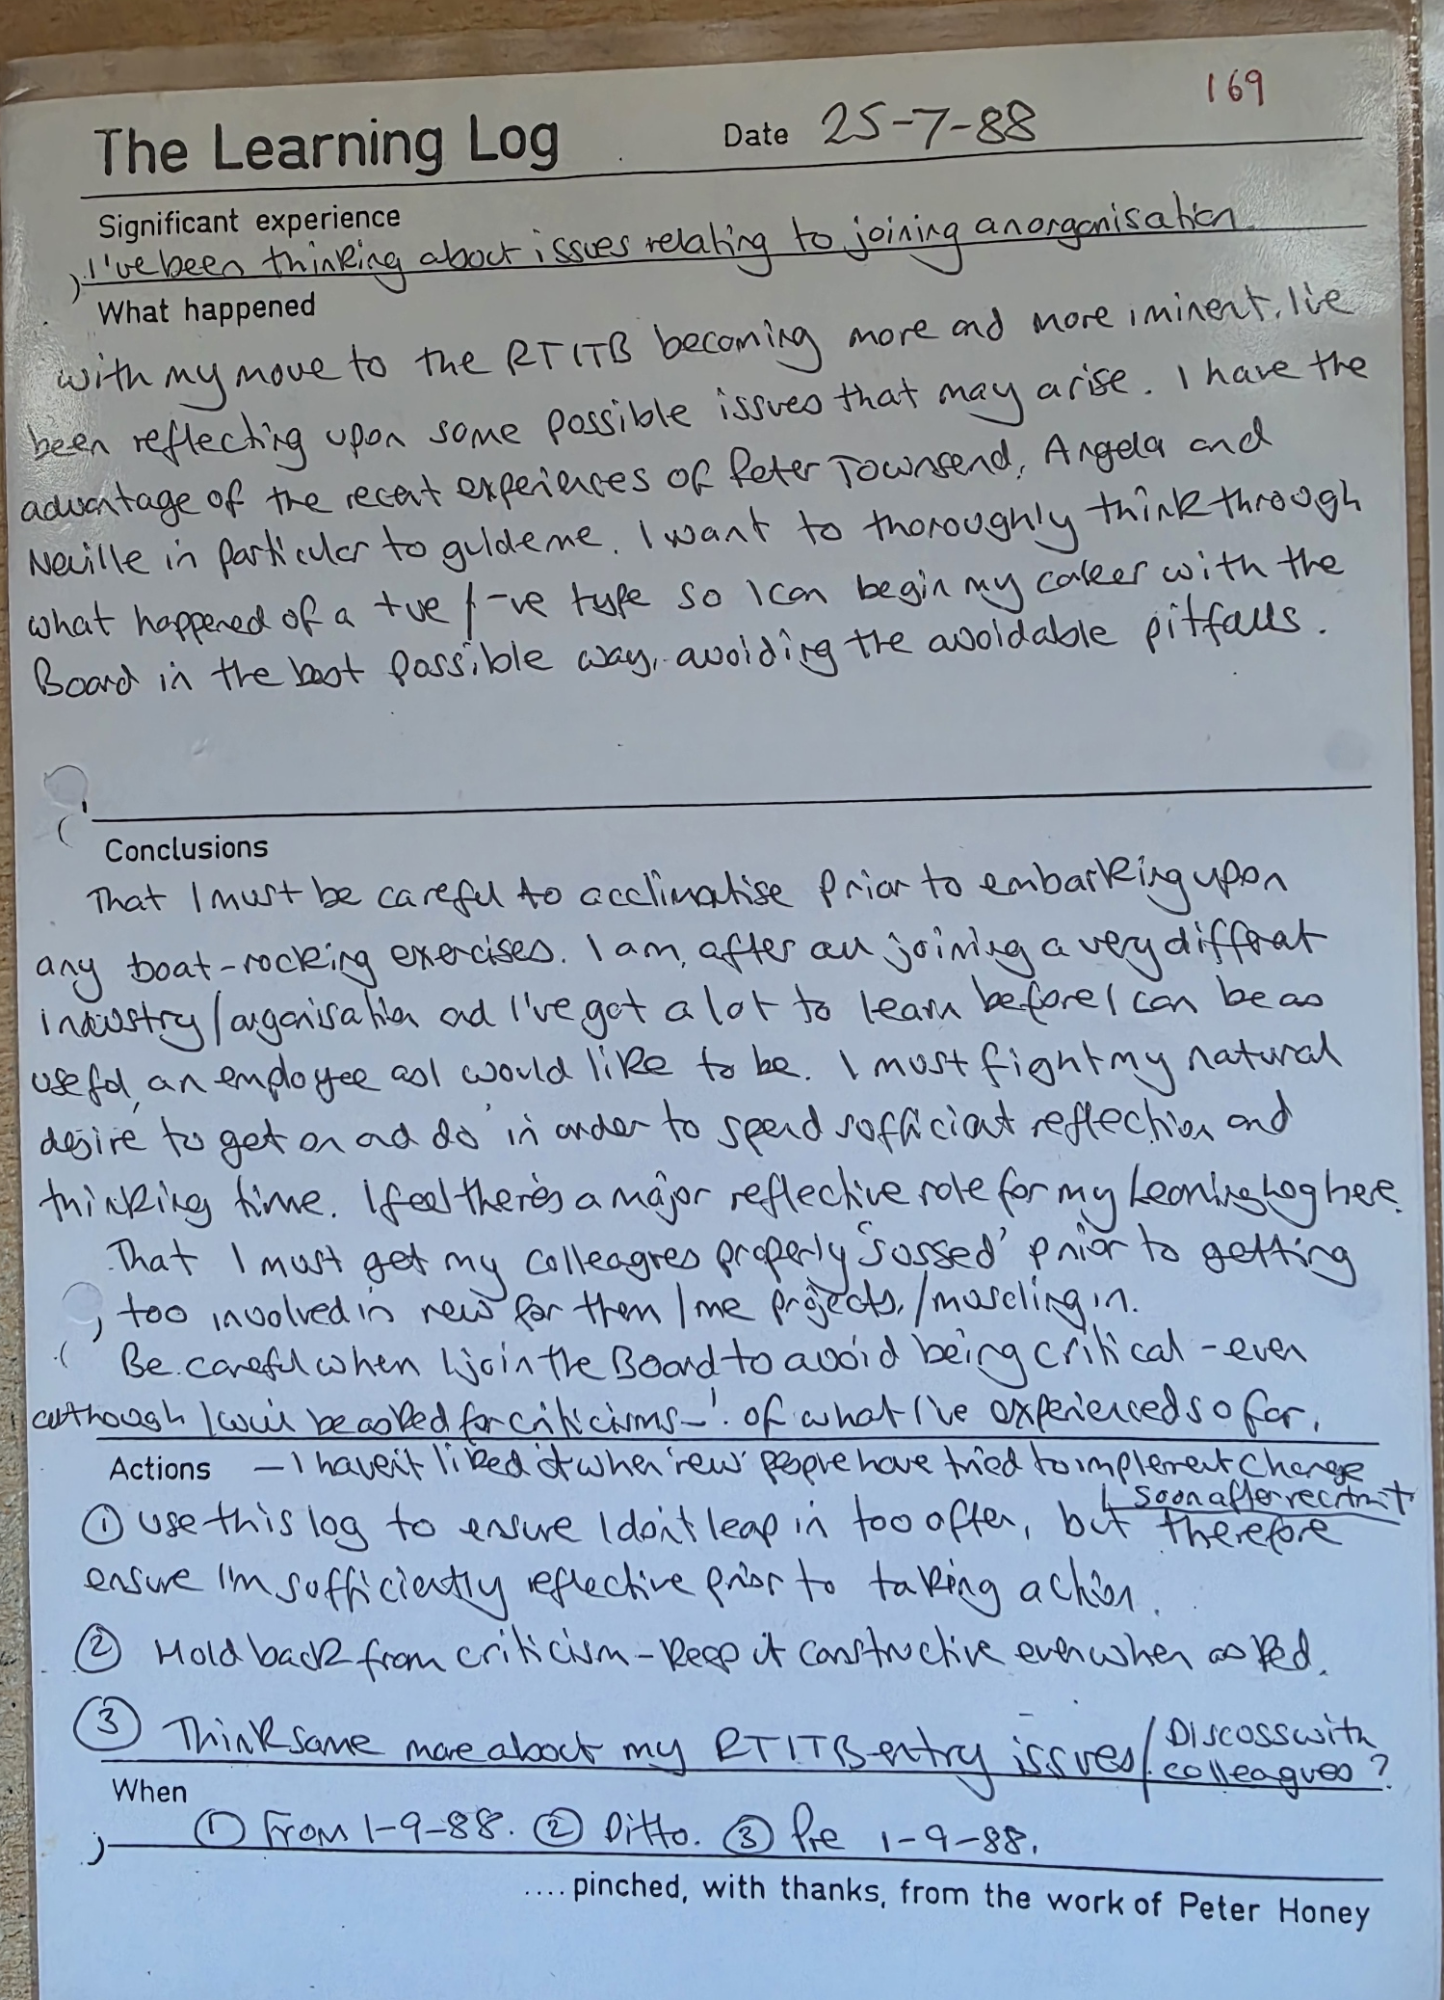 169
The Learning Log Date 25-7-88
Significant experience
I've been thinking about issues relating to joining an organisation.
What happened
With my move to the RTITB becoming more and more iminent, I've
been reflecting upon some possible issues that may arise. I have the
advantage of the recent experiences of Peter Townsend, Angela and
Neville in particular to guide me. I want to thoroughly think through
what happened of a +ve/-ve type so I can begin my career with the
Board in the best possible way, avoiding the avoidable pitfalls.
Conclusions
That I must be careful to acclimatise prior to embarking upon
any boat-rocking exercises. I am, after all joining a very different
industry/organisation and I've got a lot to learn before I can be as
useful, an employee as I would like to be. I must fight my natural
desire to 'get on and do' in order to spend sufficient reflection and
thinking time. I feel there's a major reflective role for my Learning Log here.
That I must get my colleagues properly 'sussed' prior to getting
too involved in new for them/me projects,/muscling in.
Be careful when I join the Board to avoid being critical - even
although I will be asked for criticisms -! of what I've experienced so far.
Actions - I haven't liked it when 'new' people have tried to implement change
soon after recruitment
① Use this log to ensure I don't leap in too often, but therefore
ensure I'm sufficiently reflective prior to taking action.
② Hold back from criticism - keep it constructive even when asked.
③ Think some more about my RTITB entry issues/Discuss with
colleagues?
When
① From 1-9-88. ② Ditto. ③ Pre 1-9-88.
.... pinched, with thanks, from the work of Peter Honey